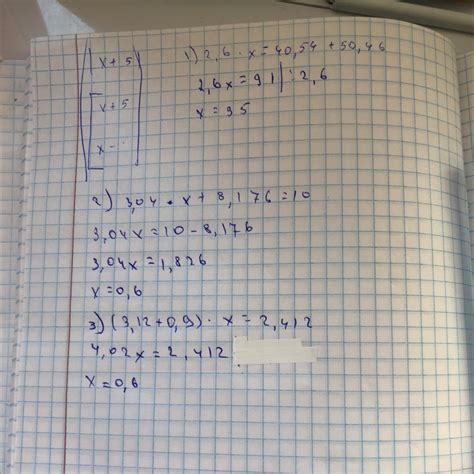 |x + 5|
x + 5
x -
1) 2,6 · x = 40,54 + 50,46
2,6x = 91 | : 2,6
x = 35
2) 3,04 · x + 8,176 = 10
3,04x = 10 - 8,176
3,04x = 1,826
x = 0,6
3) (3,12 + 0,9) · x = 2,412
4,02x = 2,412
x = 0,6